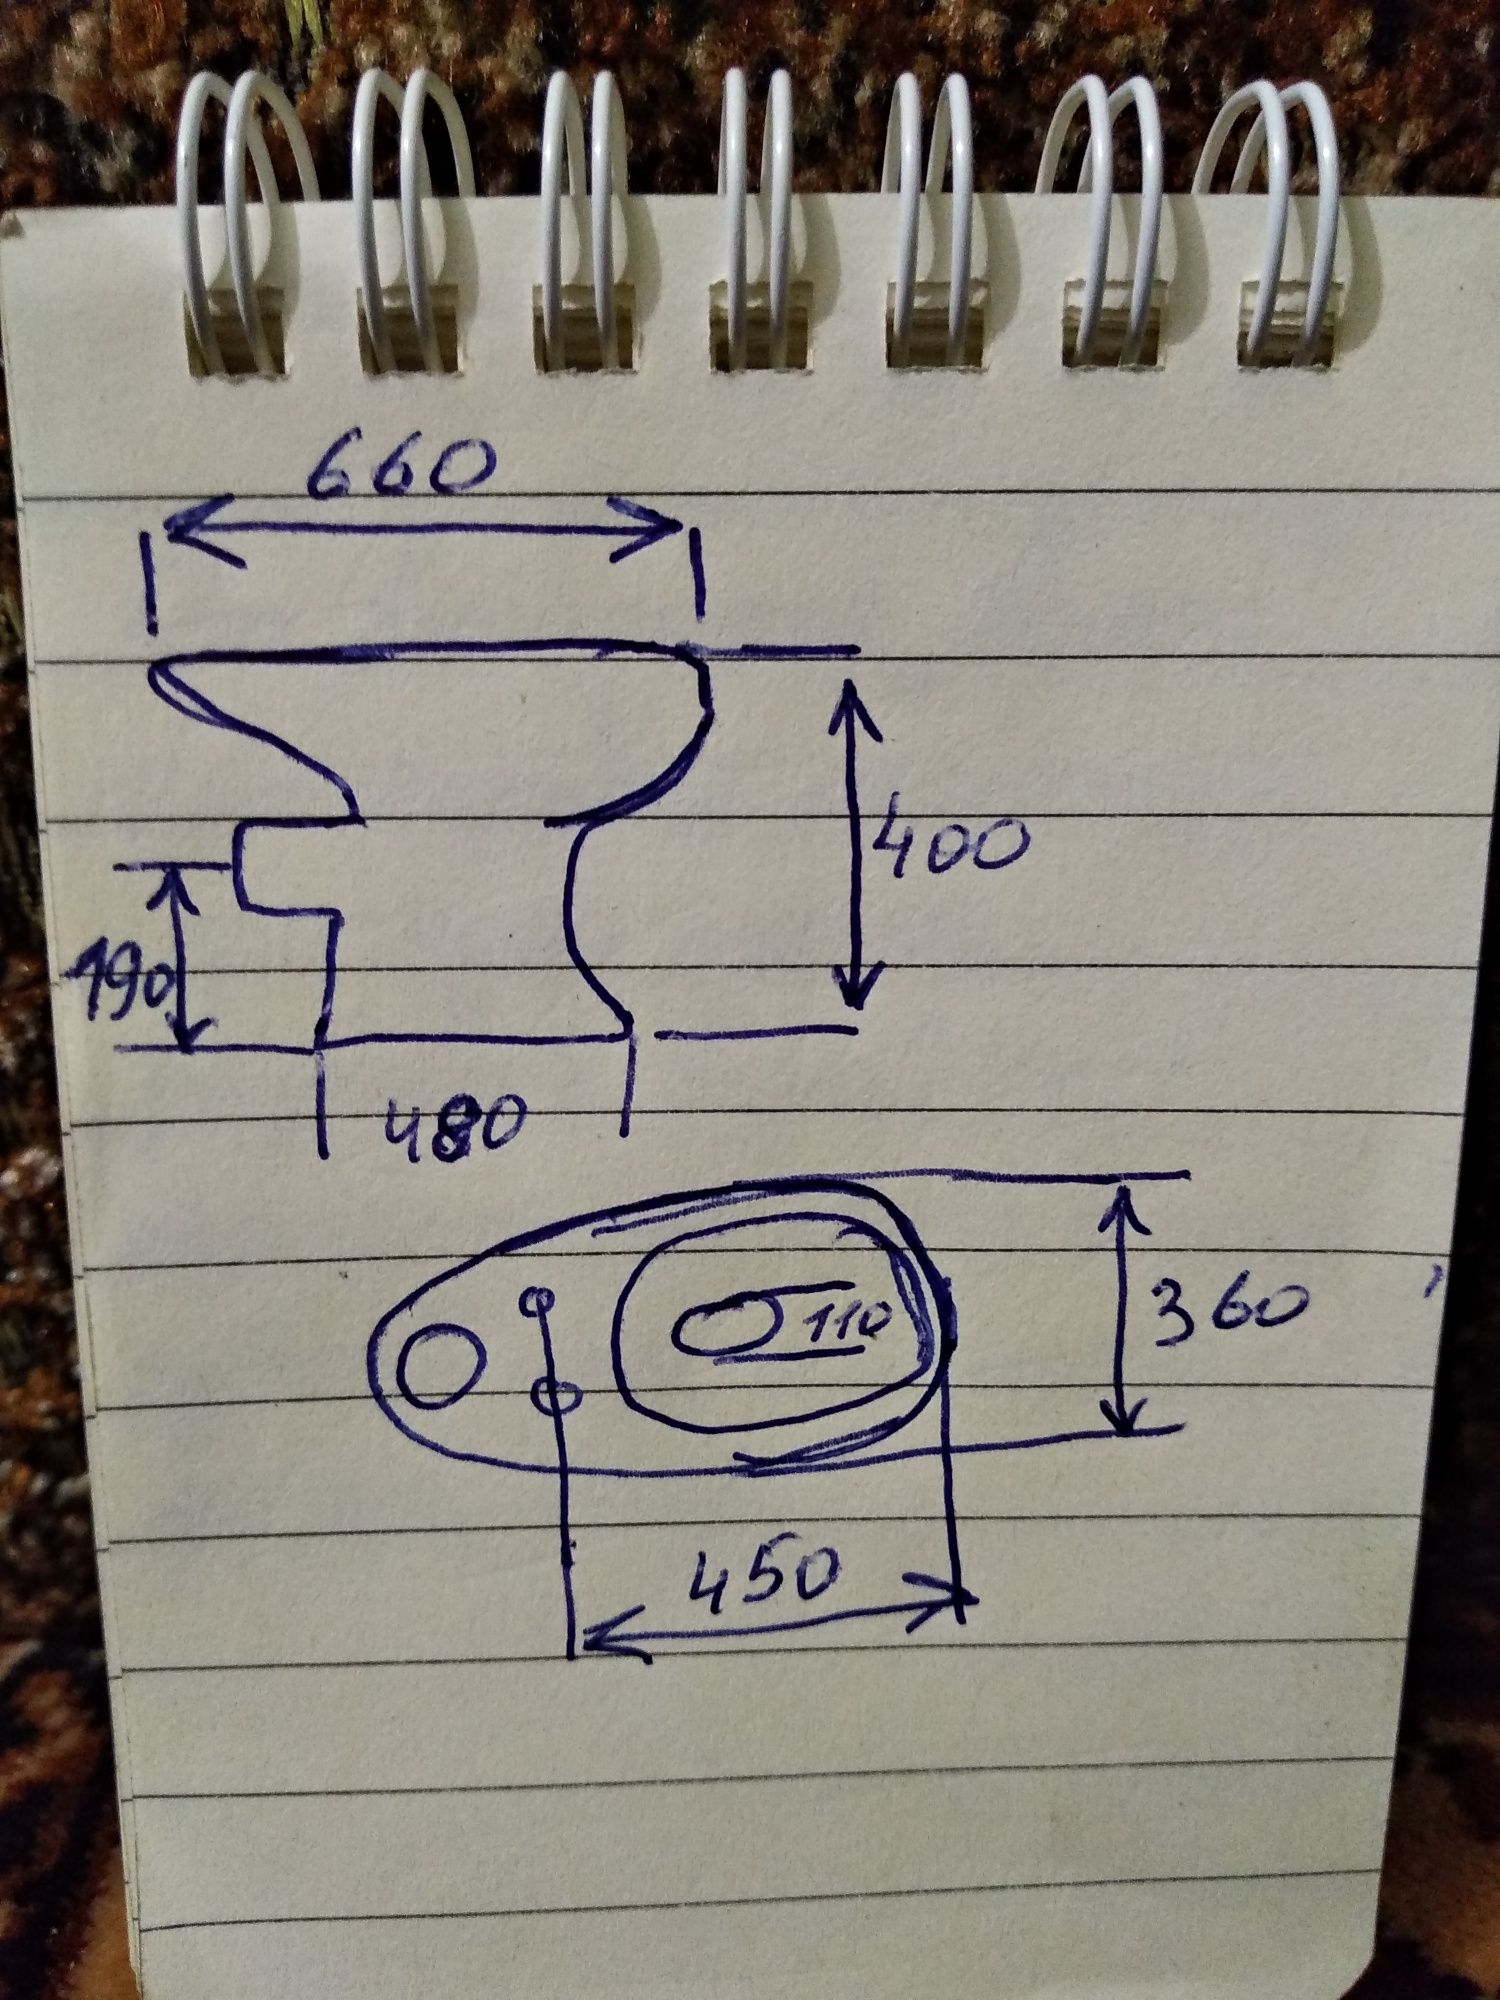 660
400
190
480
110
360
450